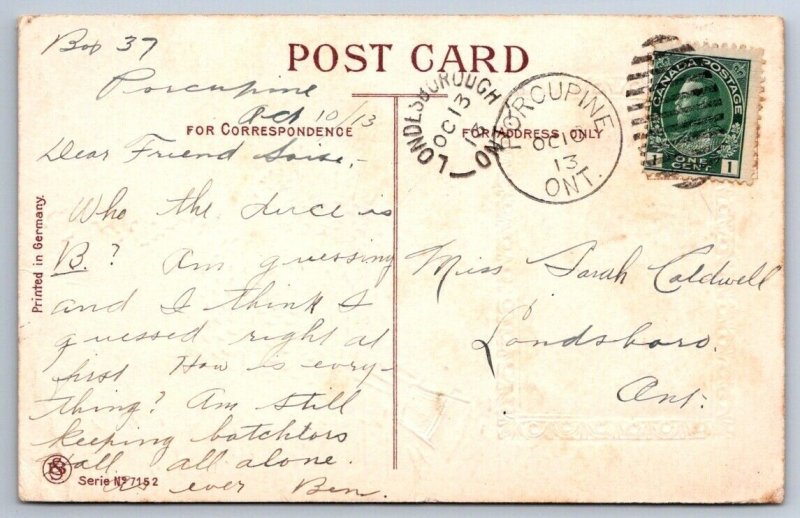 POST CARD
FOR CORRESPONDENCE
FOR ADDRESS ONLY
Box 37
Porcupine
Oct 10/13
Dear Friend
Who the duce is
B.? Am guessing
and I think I
guessed right at
first How is every-
thing? Am still
keeping batchtors
Hall all alone.
As ever Ben.
LONDESBOROUGH
OC 13
13
ONT
PORCUPINE
OC 10
13
ONT.
CANADA POSTAGE
1 ONE CENT 1
Miss Sarah Caldwell
Londsboro.
Ont.
Printed in Germany.
Serie No 7152